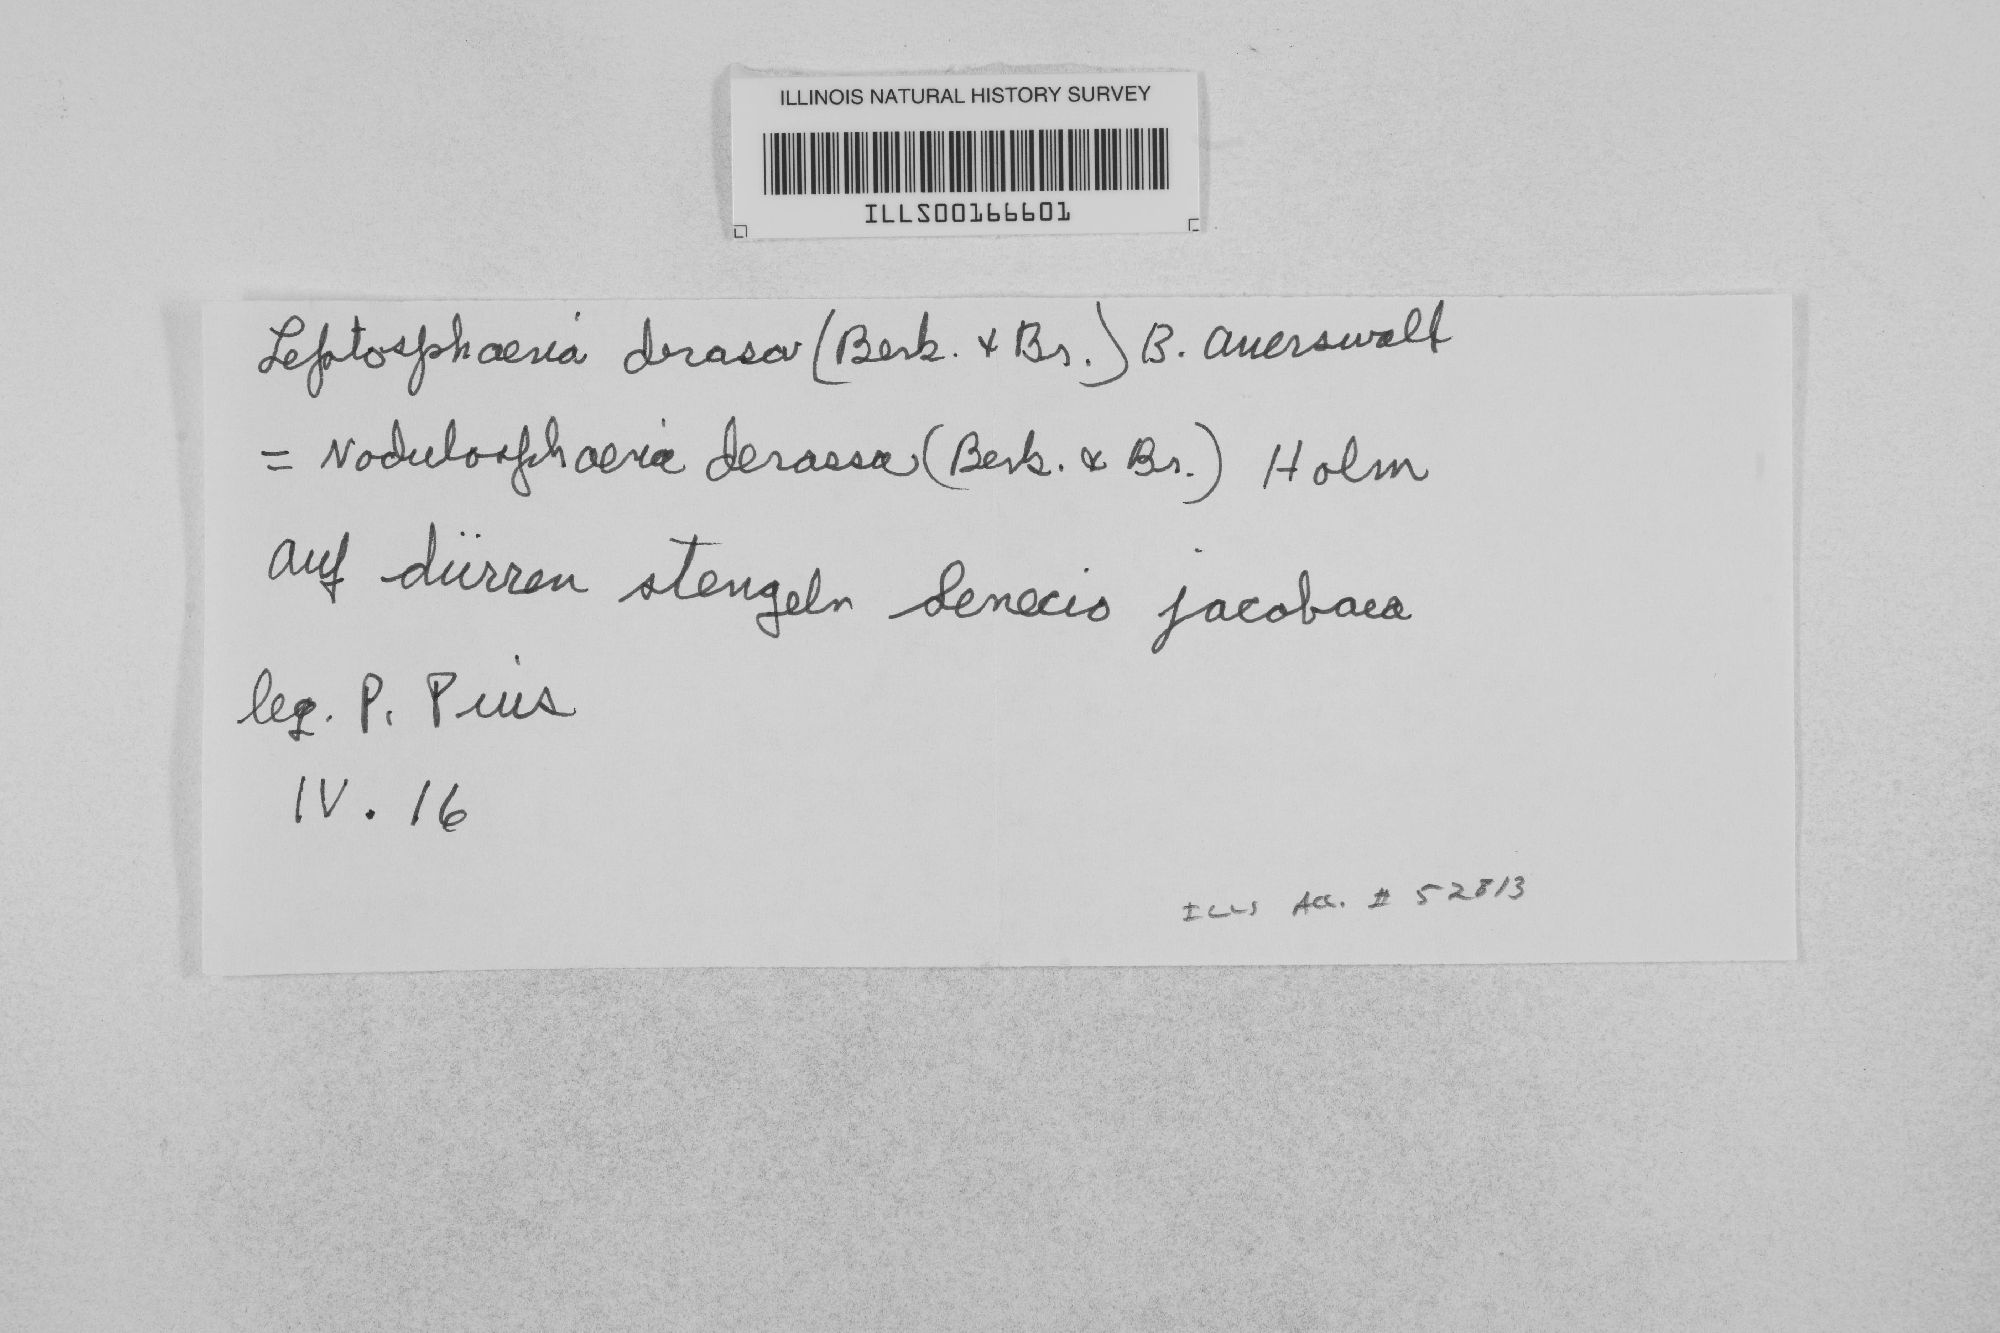 ILLINOIS NATURAL HISTORY SURVEY
ILLS00166601
Leptosphaeria derasa (Berk. & Br.) B. Auerswalt
= Nodulosphaeria derassa (Berk. & Br.) Holm
auf dürren stengeln Senecio jacobaea
leg. P. Pius
IV. 16
ILLS Acc. # 52813